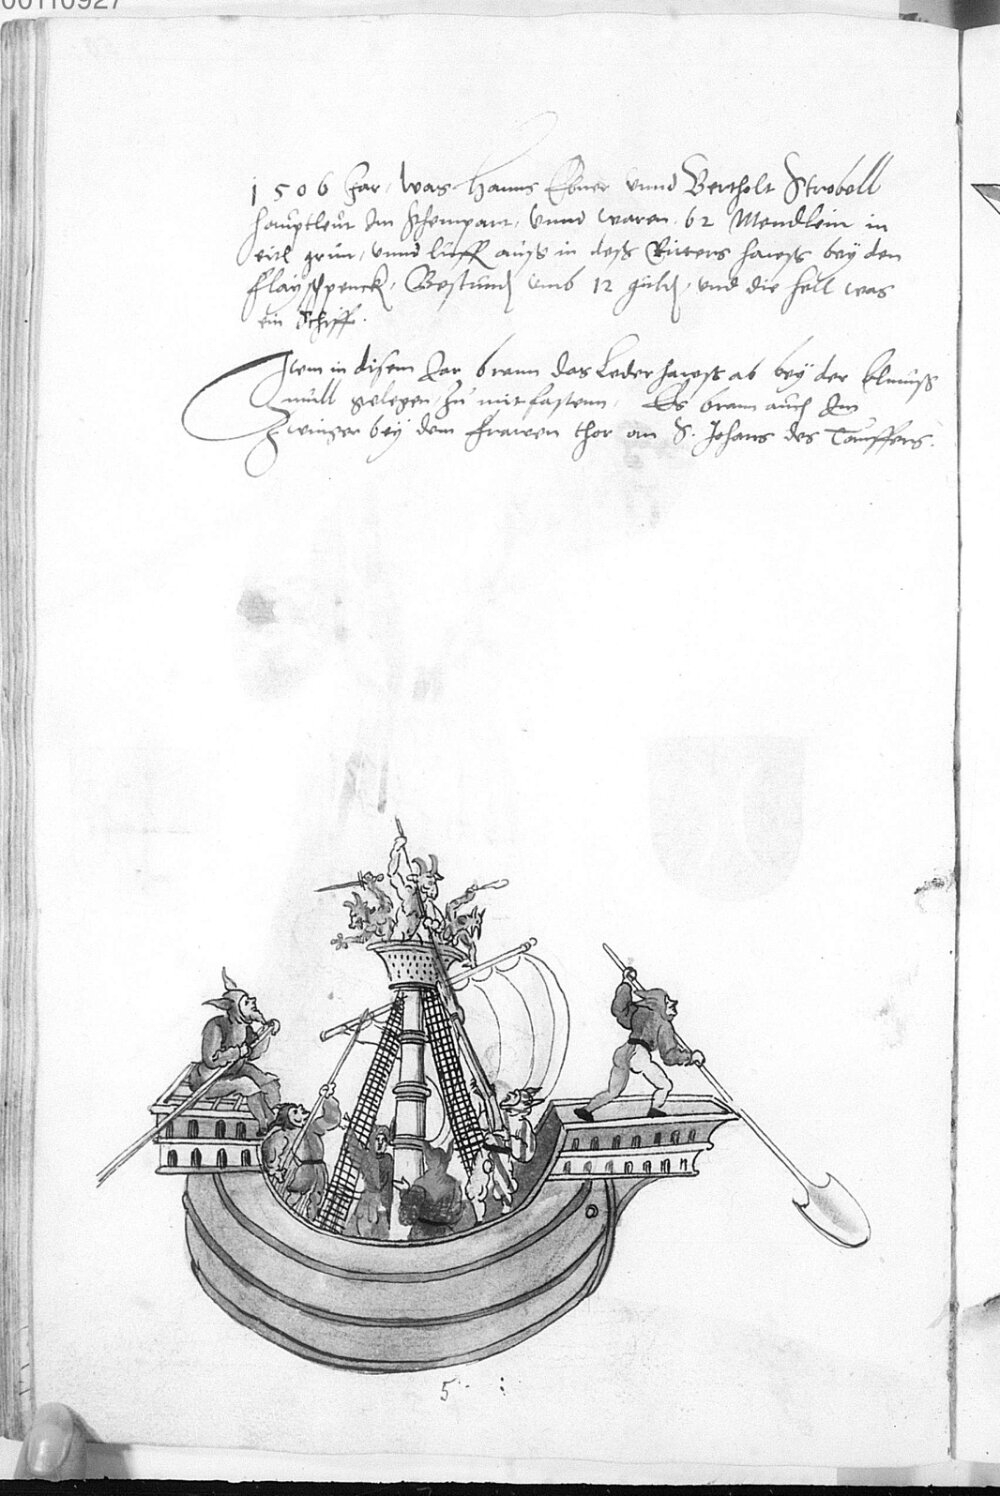 00110927
1506 Jar, was Hanns Ebner vnnd Bertholt Strobell
haüptleüt Im Schempart, vnnd waren 62 Mendlein in
eitl grün, vnnd lüeff aüß in deß Ritters hawß bey den
flayschpenck, Bestünd vmb 12 guld, vnd die hell was
ein Schiff.
Item in disem Jar brann das Leder hawß ab bey der Almüß
müll gelegen, zu mitfasten, Es brann auch Im
Zwinger bey dem frawen thor an S. Johans des Tauffers.
5